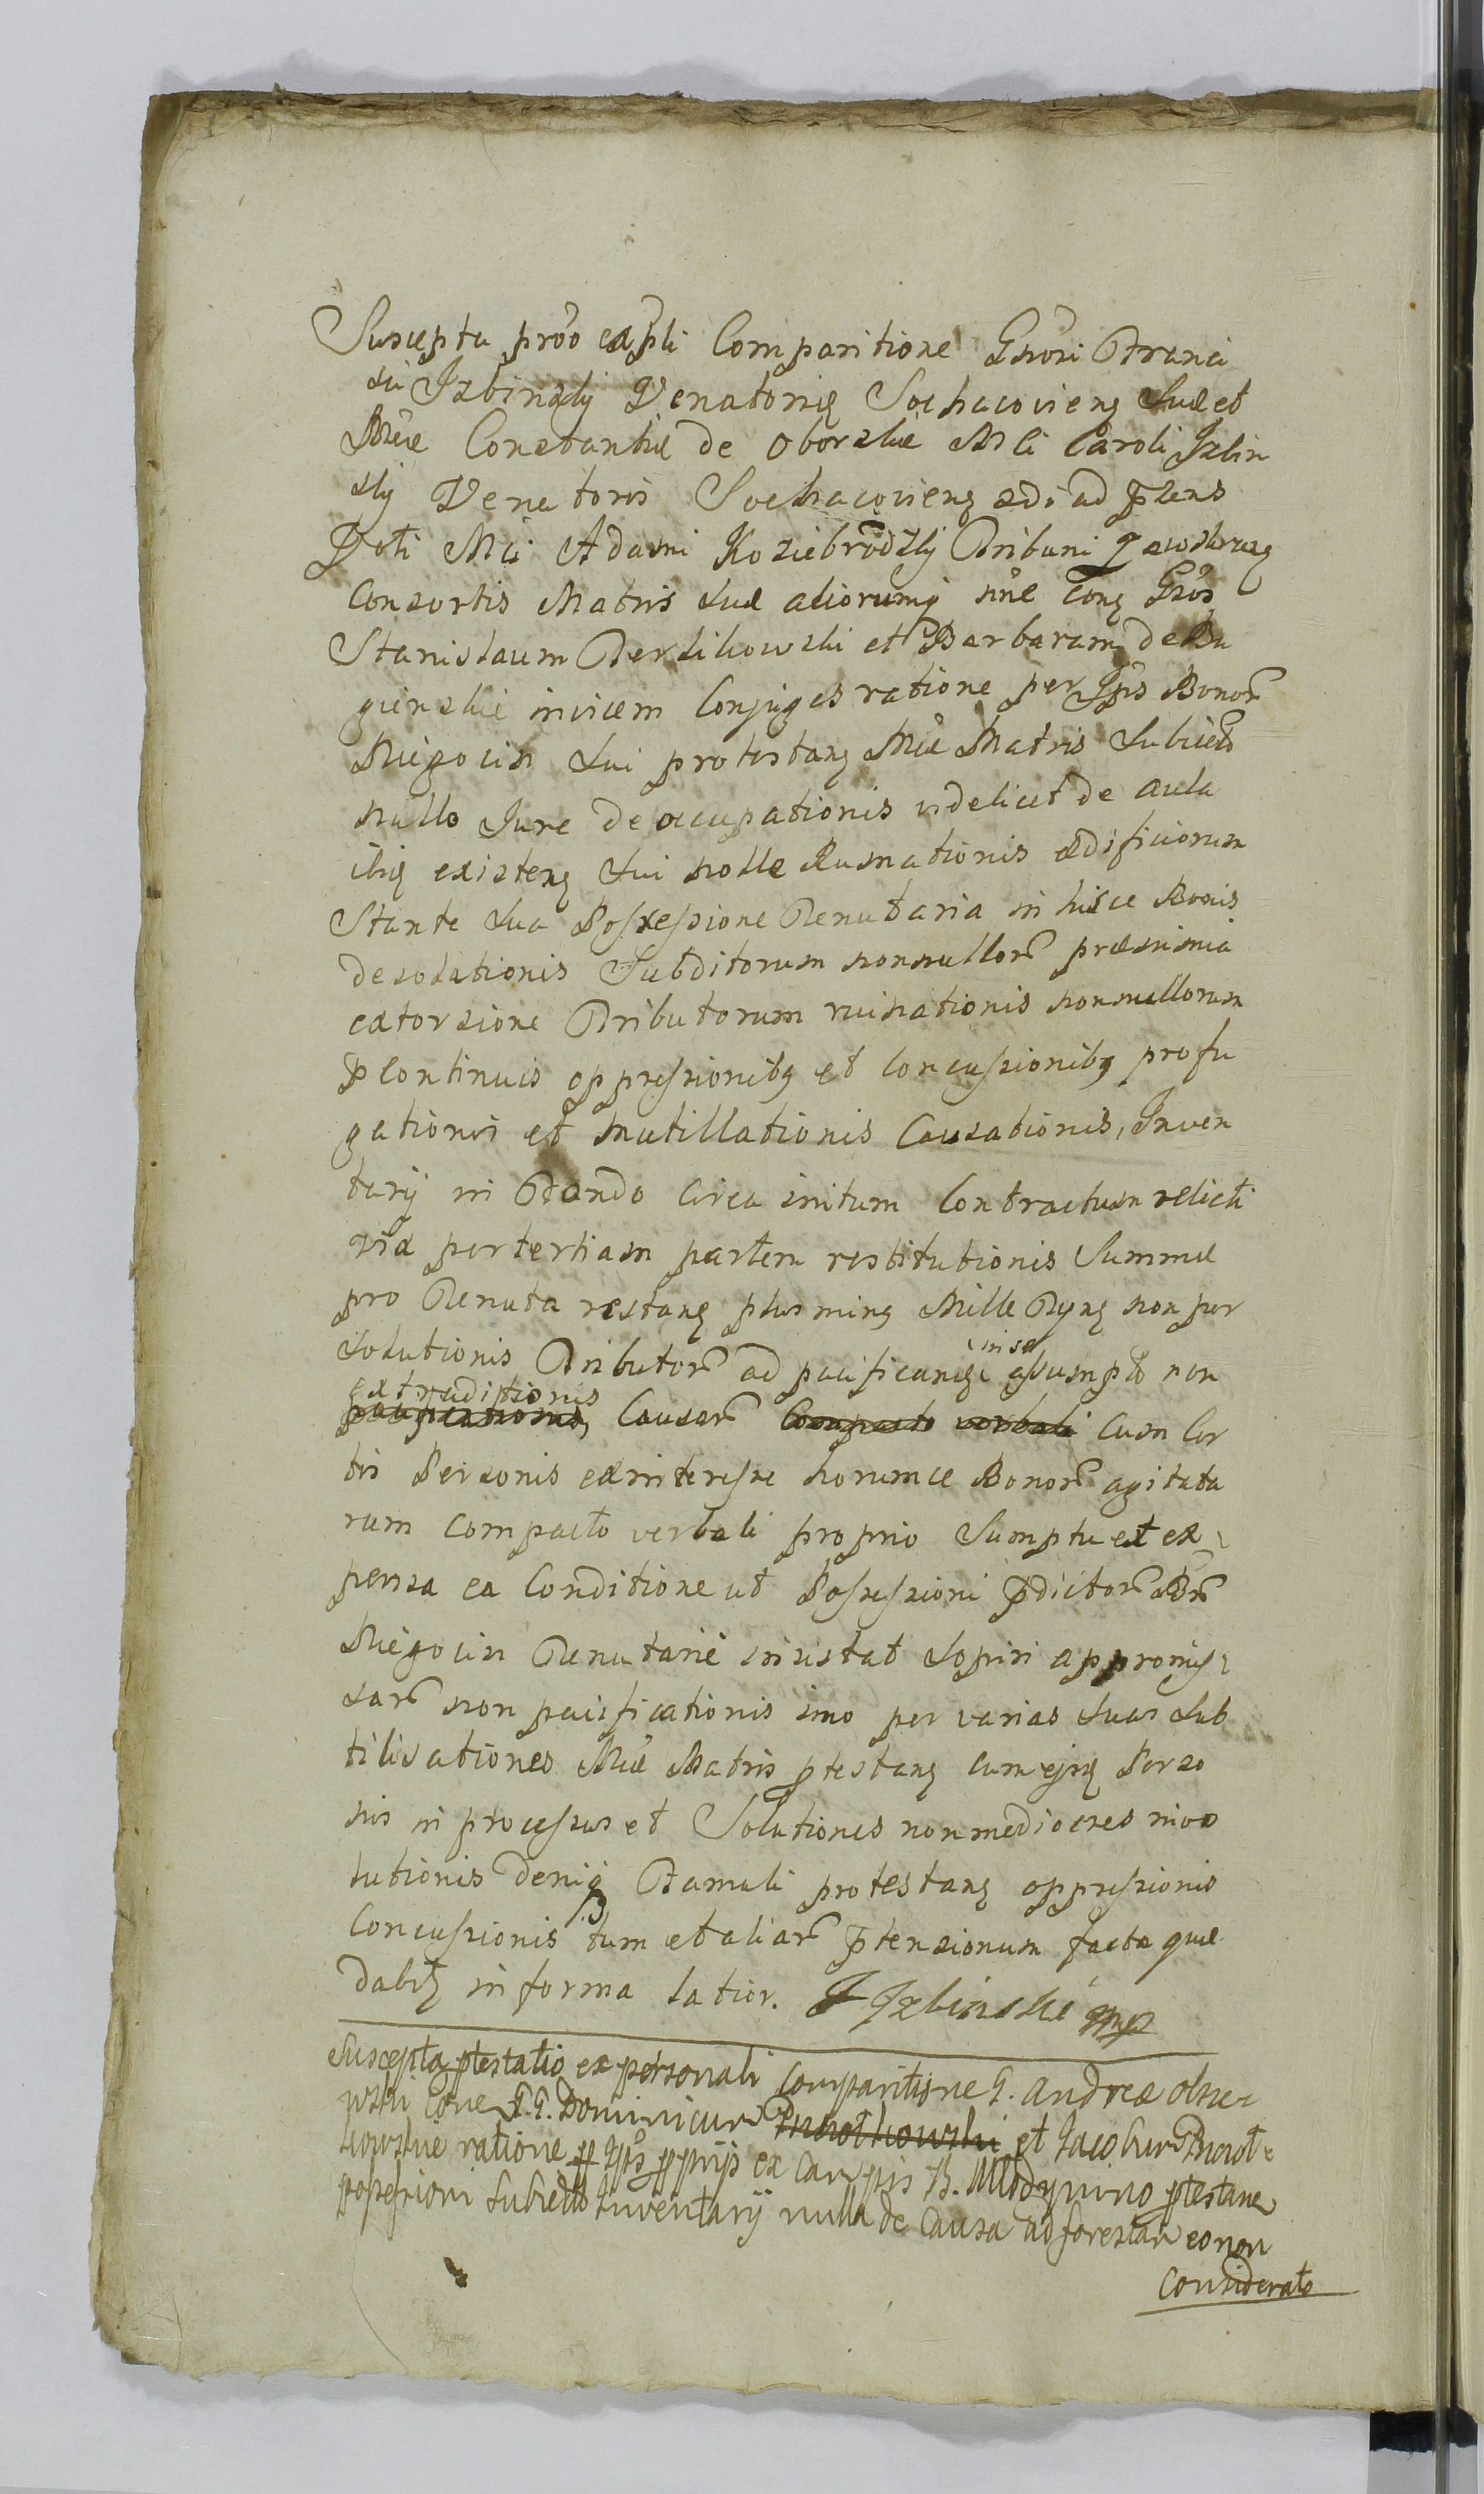 Suscepta pro͠o ex p͠li Comparitione G͠nosi Franci
sci Izbinsky Venatoris Sochacoviens Suæ et
M͠cæ Constantiæ de Oborskie M͠ci Caroli Izbin
sky Venatoris Sochacoviens ad p͠sens
M͠ci Adami Koziebrodzky Tribuni
Consortis Matris suæ aliorumq n͠ne Con͠a G͠sos
Stanislaum Dersilkowski et Barbaram de Bu
gienskie invicem Conjuges ratione per Ip͠s Bonor͠
Niegocin sui protestans M͠cæ Matris Subiect͠o
nullo Jure de occupationis videlicet de aula
ibiq existens sui nolle Rumationis ædificiorum
Stante sua Possessione Tenutaria in hisce Bonis
desolationis Subditorum nonnullor͠ præsnimia
extorsione Tributorum ruinationis nonnullorum
p Continuis oppressionibq et concussionibq profu
gationis et mutillationis Causationis, Inven
tarij in Fundo circa initum Contractum relicti
vix per tertiam partem restitutionis Summæ
pro Tenuta restans plus minq Mille Tyns non per
solutionis Tributor͠ ad pacificand in se assumpt͠o non
extraditionis Causar͠ Compacto verbali Cum Cer
tis Personis ex interesse horumce Bonor͠ agitata
rum compacto verbali proprio Sumptu et ex
pensa ea Conditione ut Possessioni p͠dictor͠ B͠r͠
Niegocin Tenutarie insistat sopiri appromis
sar͠ non pacificationis imo per varias suas sub
tilisationes M͠cæ Matris ptestans cum ejusq Perso
nis in processus et Solutiones non mediocres invo
lutionis deniq Famuli protestans oppressionis
Concussionis tum et aliar͠ p͠tensionum facta quæ
dabit in forma latior. F Izbinski mp
Suscepta ptestatio ex personali Comparitione G. Andreæ Olsze
wski Con͠a G. G. Dominicum Duchotkowski et Jacobum
kowskie ratione p Ip͠s pprijs ex Campis B. Mlodynino ptestane
possessioni subiectis Inventarij nulla de Causa ad forestari eo non
Considerato